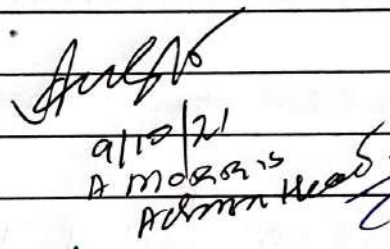 9/10/21
A Morris
Admin Head